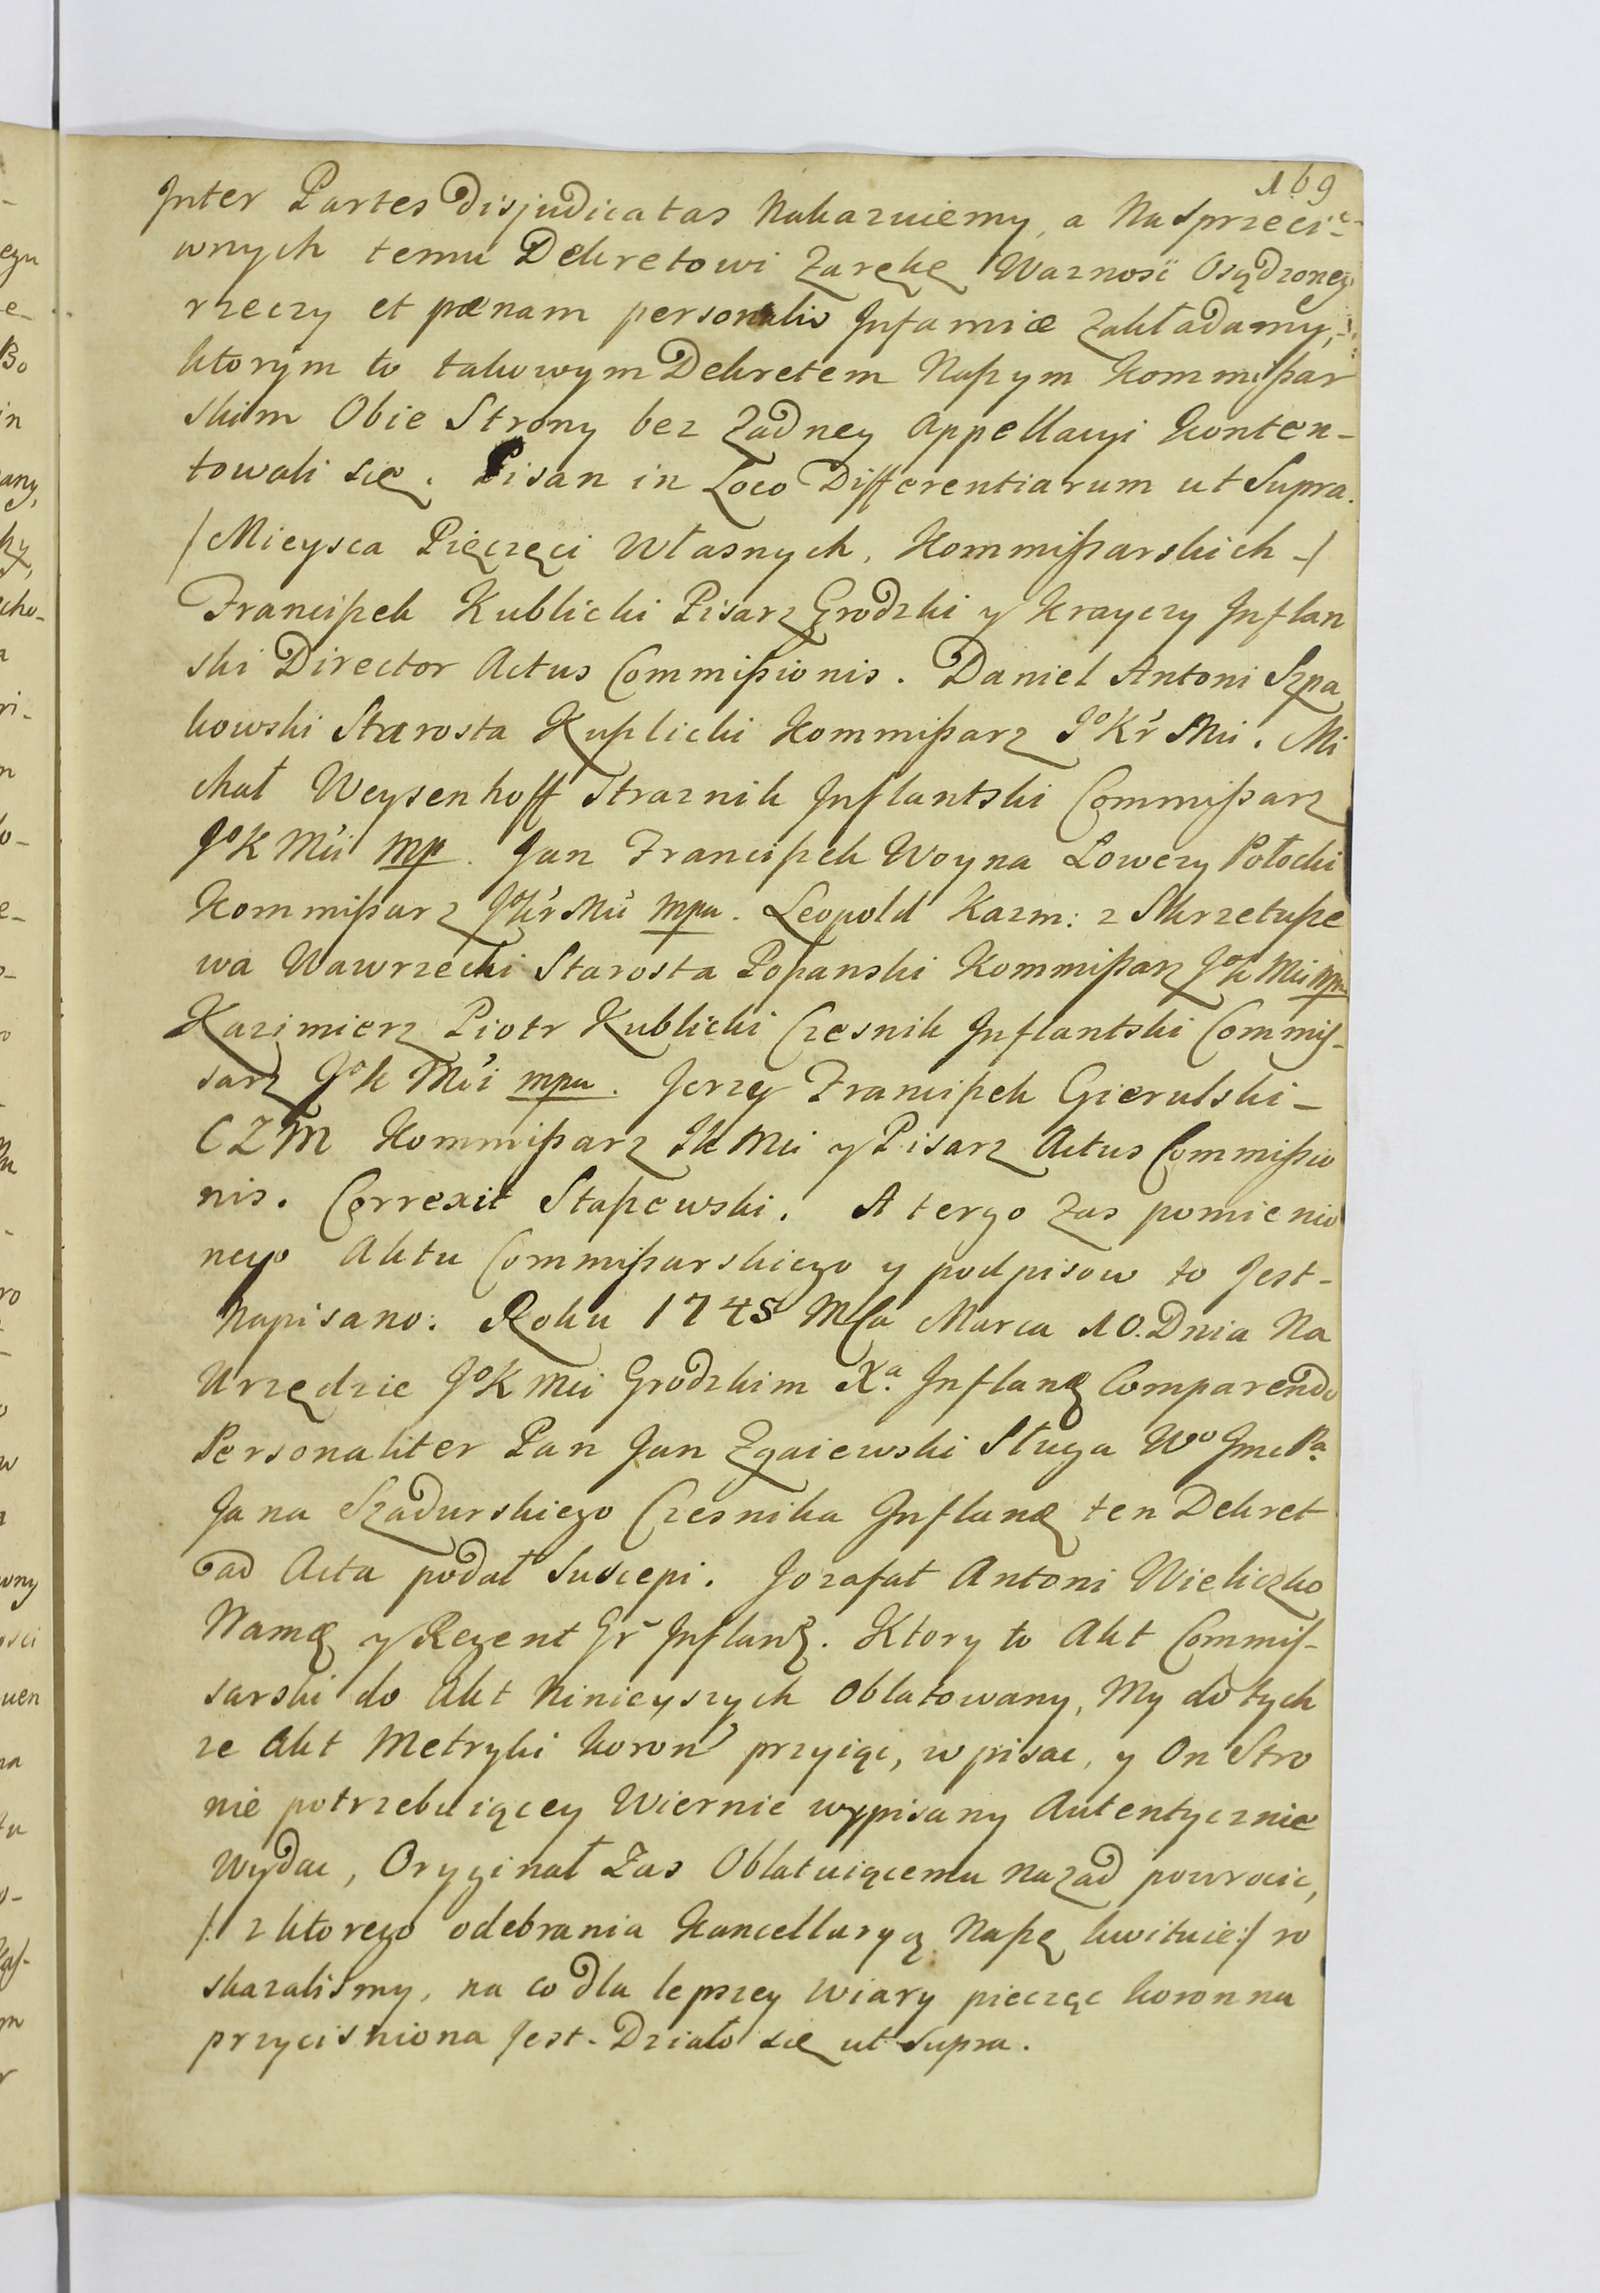 169
Inter Partes disjudicatas Nakazuiemy, a Na Sprzeci-
wnych temu Dekretowi Zarękę Waznosc Osądzoney
rzeczy et pœnam personalis Infamiæ zakładamy,
ktorym to takowym Dekretem Naßym Kommißar
skim Obie Strony bez Zadney Appellacyi konten-
towali się. Pisan in Loco Differentiarum ut Supra.
/ Mieysca Pięczęci Własnych, Kommißarskich -/
Francißek Kublicki Pisarz Grodzki y Krayczy Inflan
ski Director Actus Commißionis. Daniel Antoni Szpa
kowski Starosta Kußlicki Kommißarz Jo Kr Mci. Mi
chał Weysenhoff Straznik Inflantski Commißarz
Jo K Mci mp. Jan Francißek Woyna Lowczy Połocki
Kommißarz Jo Kr Mci mpu. Leopold Kazm: z Skrzetuße
wa Wawrzecki Starosta Poßanski Kommißarz Jo K Mci mpu
Kazimierz Piotr Kublicki Czesnik Inflantski Commis-
sarz Jo K Mci mpu. Jerzy Francißek Gierulski -
C Z M Kommißarz JK Mci y Pisarz Actus Commißio
nis. Correxit Staßewski. A tergo Zas pomienio
nego Aktu Commißarskiego y podpisow to Jest -
Napisano: Roku 1745 MCa Marca 10. Dnia Na
Urzędzie Jo K Mci Grodzkim Xa. Inflan Comparendo
Personaliter Pan Jan Zgaiewski Sługa Wo Jmc Pa
Jana Szadurskiego Czesnika Inflan ten Dekret
ad Acta podał Suscepi. Jozafat Antoni Wieliczko
Nam y Regent Gr Inflan. Ktory to Akt Commis-
sarski do Akt Ninieyszych Oblatowany, My do tych
ze Akt Metryki Koron przyiąc, wpisac, y On Stro
nie potrzebuiącey Wiernie wypisany Autentycznie
Wydac, Oryginał Zas Oblatuiącemu nazad powrocic,
/: z ktorego odebrania Kancellaryą Naßę kwituie:/ ro
skazalismy, na co dla lepszey Wiary pieczęc koronna
przycisniona Jest. Działo się ut Supra.